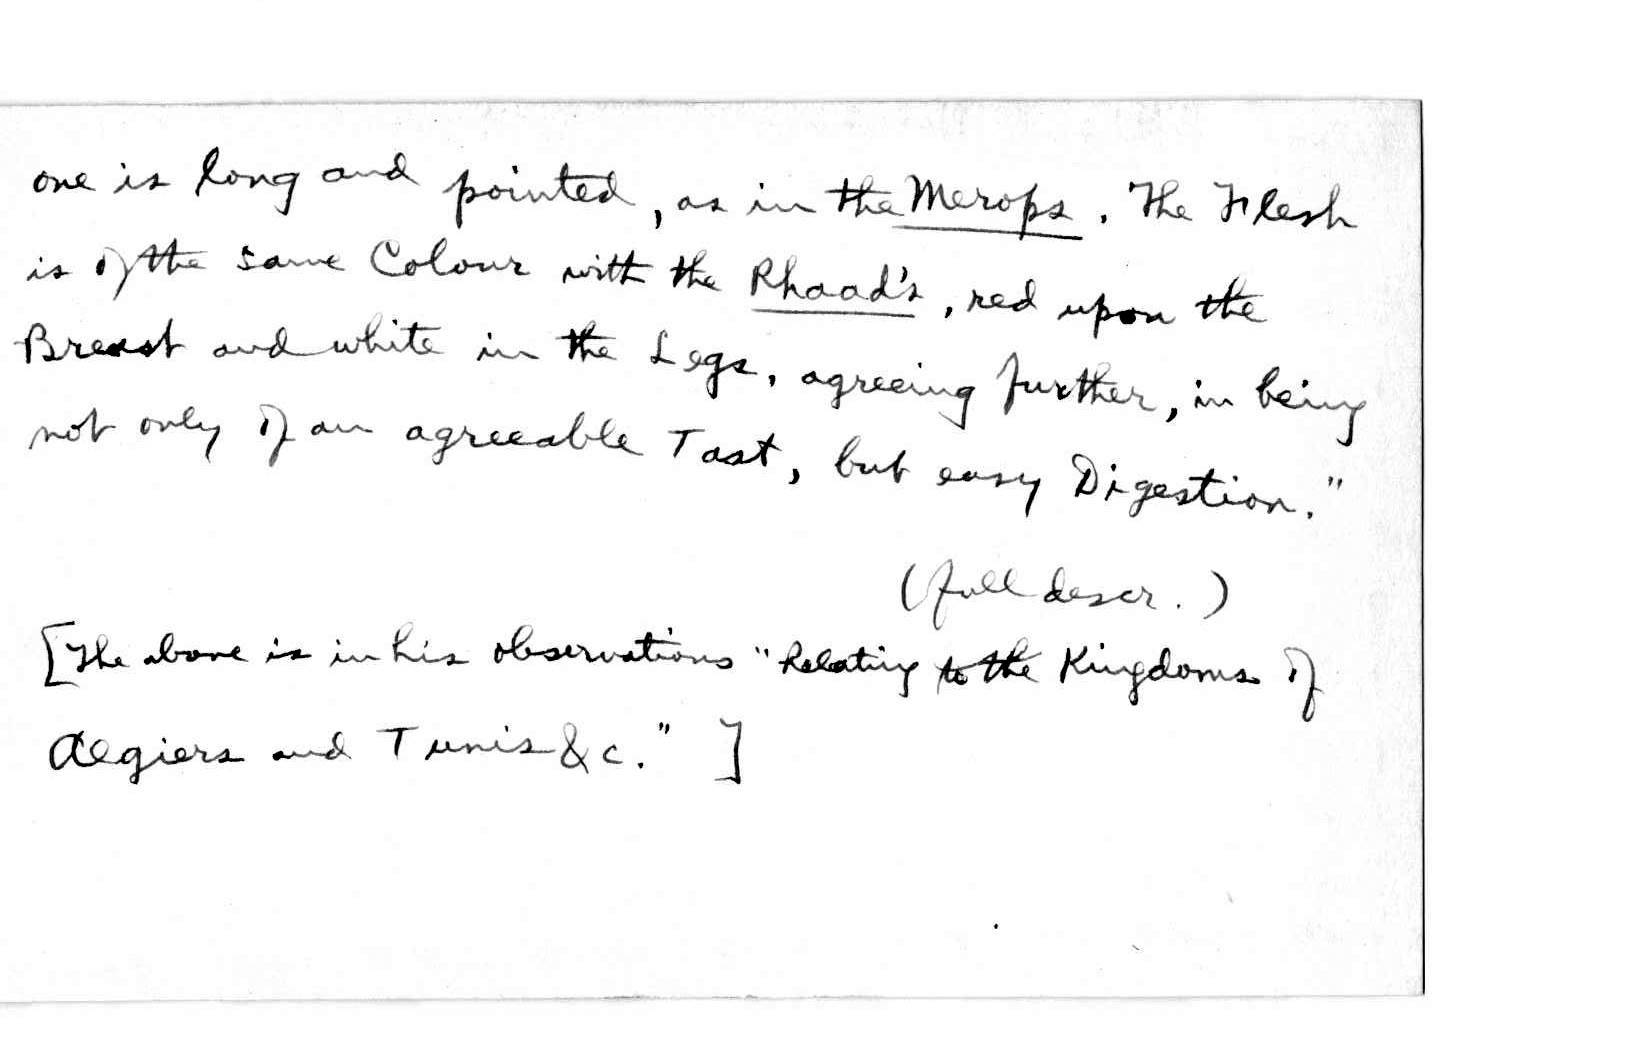 one is long and pointed, as in the Merops. The Flesh
is of the same Colour with the Rhaad's, red upon the
Breast and white in the Legs, agreeing further, in being
not only of an agreeable Tast, but easy Digestion."
(full descr.)
[The above is in his observations "Relating to the Kingdoms of
Algiers and Tunis &c." ]